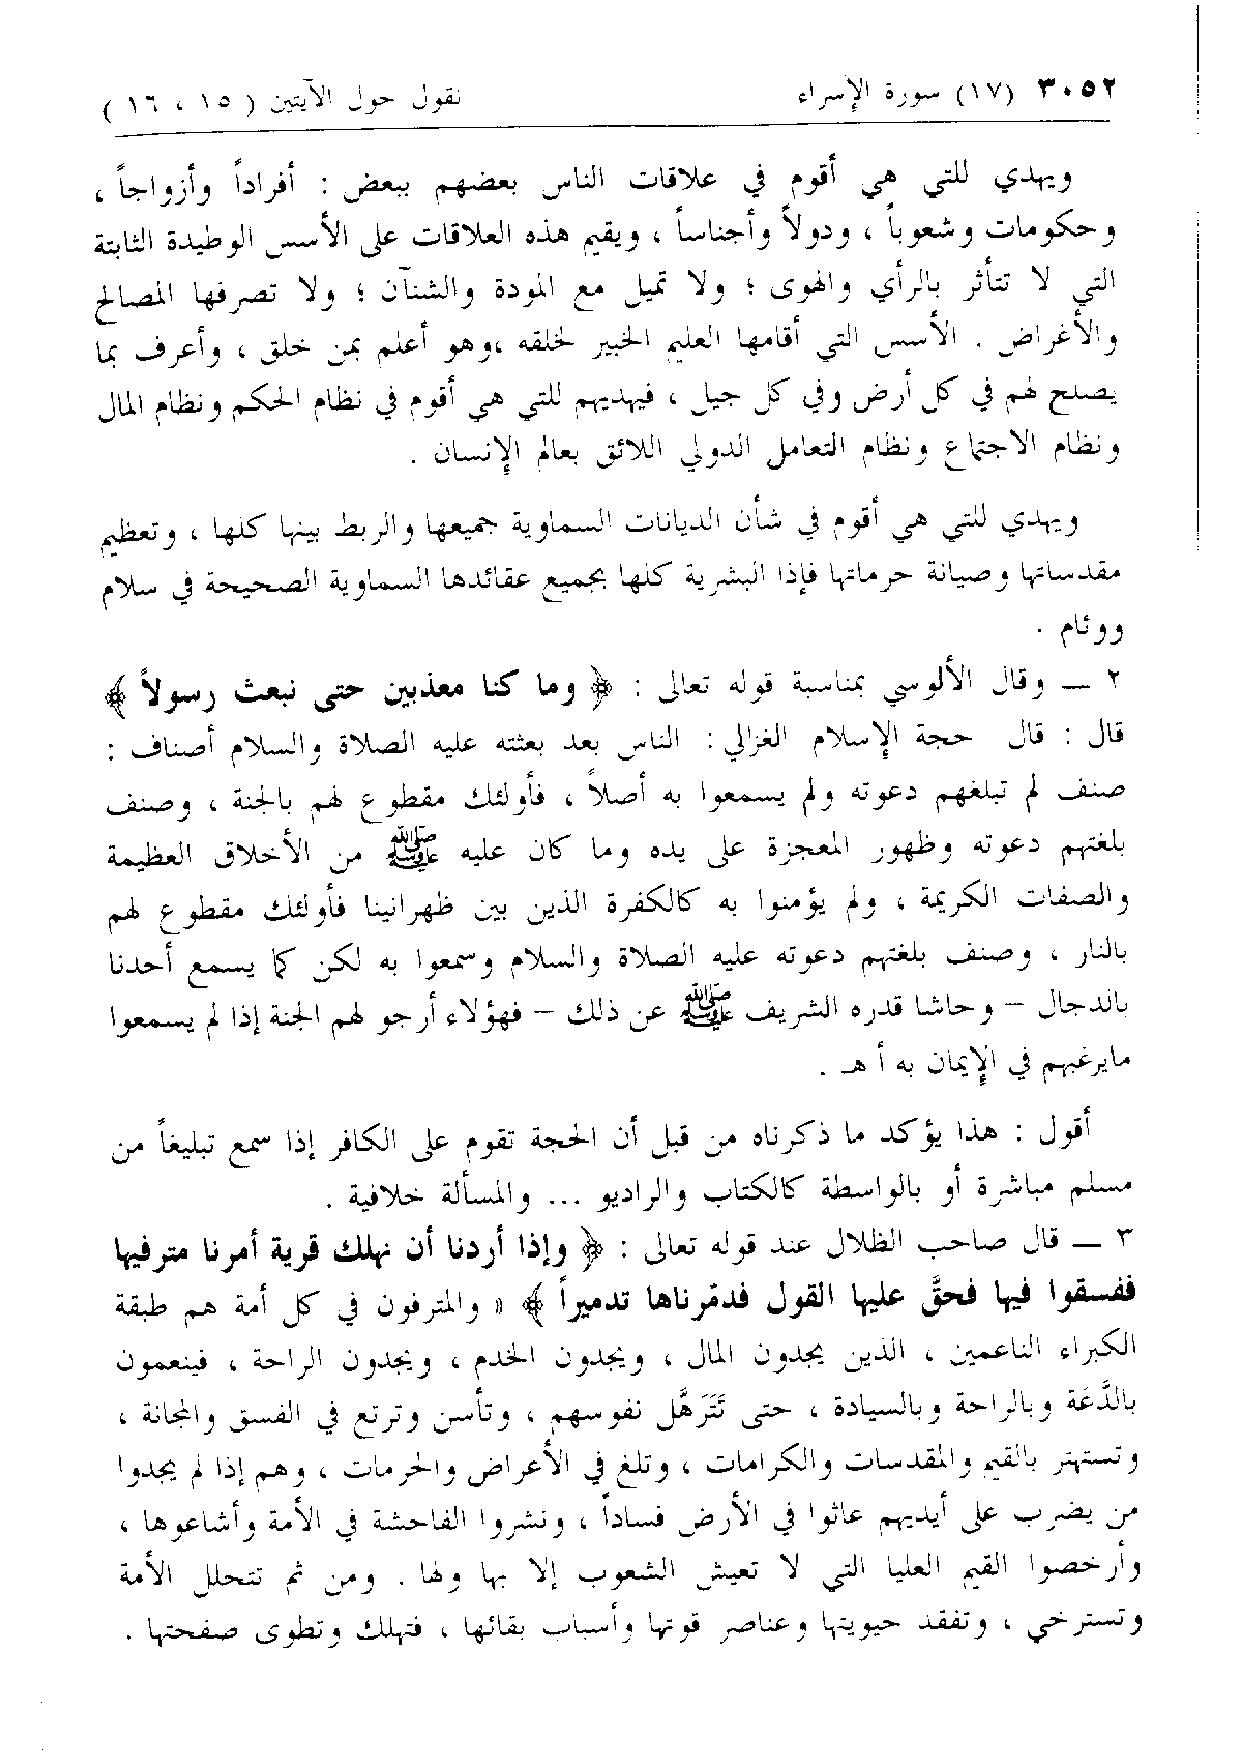 ٣٠٥٢ (١٧) سورة الإسراء نقول حول الآيتين ( ١٥ ، ١٦ )
ويهدي للتي هي أقوم في علاقات الناس بعضهم ببعض : أفراداً وأزواجاً ،
وحكومات وشعوباً ، ودولاً وأجناساً ، ويقيم هذه العلاقات على الأسس الوطيدة الثابتة
التي لا تتأثر بالرأي والهوى ؛ ولا تميل مع المودة والشنآن ؛ ولا تصرفها المصالح
والأغراض . الأسس التي أقامها العليم الخبير لخلقه ،وهو أعلم بمن خلق ، وأعرف بما
يصلح لهم في كل أرض وفي كل جيل ، فيهديهم للتي هي أقوم في نظام الحكم ونظام المال
ونظام الاجتماع ونظام التعامل الدولي اللائق بعالم الإنسان .
ويهدي للتي هي أقوم في شأن الديانات السماوية جميعها والربط بينها كلها ، وتعظيم
مقدساتها وصيانة حرماتها فإذا البشرية كلها بجميع عقائدها السماوية الصحيحة في سلام
ووئام .
٢ ــ وقال الألوسي بمناسبة قوله تعالى : ﴿ وما كنا معذبين حتى نبعث رسولاً ﴾
قال : قال حجة الإسلام الغزالي : الناس بعد بعثته عليه الصلاة والسلام أصناف :
صنف لم تبلغهم دعوته ولم يسمعوا به أصلاً ، فأولئك مقطوع لهم بالجنة ، وصنف
بلغتهم دعوته وظهور المعجزة على يده وما كان عليه ﷺ من الأخلاق العظيمة
والصفات الكريمة ، ولم يؤمنوا به كالكفرة الذين بين ظهرانينا فأولئك مقطوع لهم
بالنار ، وصنف بلغتهم دعوته عليه الصلاة والسلام وسمعوا به لكن كما يسمع أحدنا
بالدجال – وحاشا قدره الشريف ﷺ عن ذلك – فهؤلاء أرجو لهم الجنة إذا لم يسمعوا
مايرغبهم في الإيمان به أ هـ .
أقول : هذا يؤكد ما ذكرناه من قبل أن الحجة تقوم على الكافر إذا سمع تبليغاً من
مسلم مباشرة أو بالواسطة كالكتاب والراديو ... والمسألة خلافية .
٣ ــ قال صاحب الظلال عند قوله تعالى : ﴿ وإذا أردنا أن نهلك قرية أمرنا مترفيها
ففسقوا فيها فحقَّ عليها القول فدمّرناها تدميراً ﴾ « والمترفون في كل أمة هم طبقة
الكبراء الناعمين ، الذين يجدون المال ، ويجدون الخدم ، ويجدون الراحة ، فينعمون
بالدَّعَة وبالراحة وبالسيادة ، حتى تَتَرَهَّل نفوسهم ، وتأسن وترتع في الفسق والمجانة ،
وتستهتر بالقيم والمقدسات والكرامات ، وتلغ في الأعراض والحرمات ، وهم إذا لم يجدوا
من يضرب على أيديهم عاثوا في الأرض فساداً ، ونشروا الفاحشة في الأمة وأشاعوها ،
وأرخصوا القيم العليا التي لا تعيش الشعوب إلا بها ولها . ومن ثم تتحلل الأمة
وتسترخي ، وتفقد حيويتها وعناصر قوتها وأسباب بقائها ، فتهلك وتطوى صفحتها .